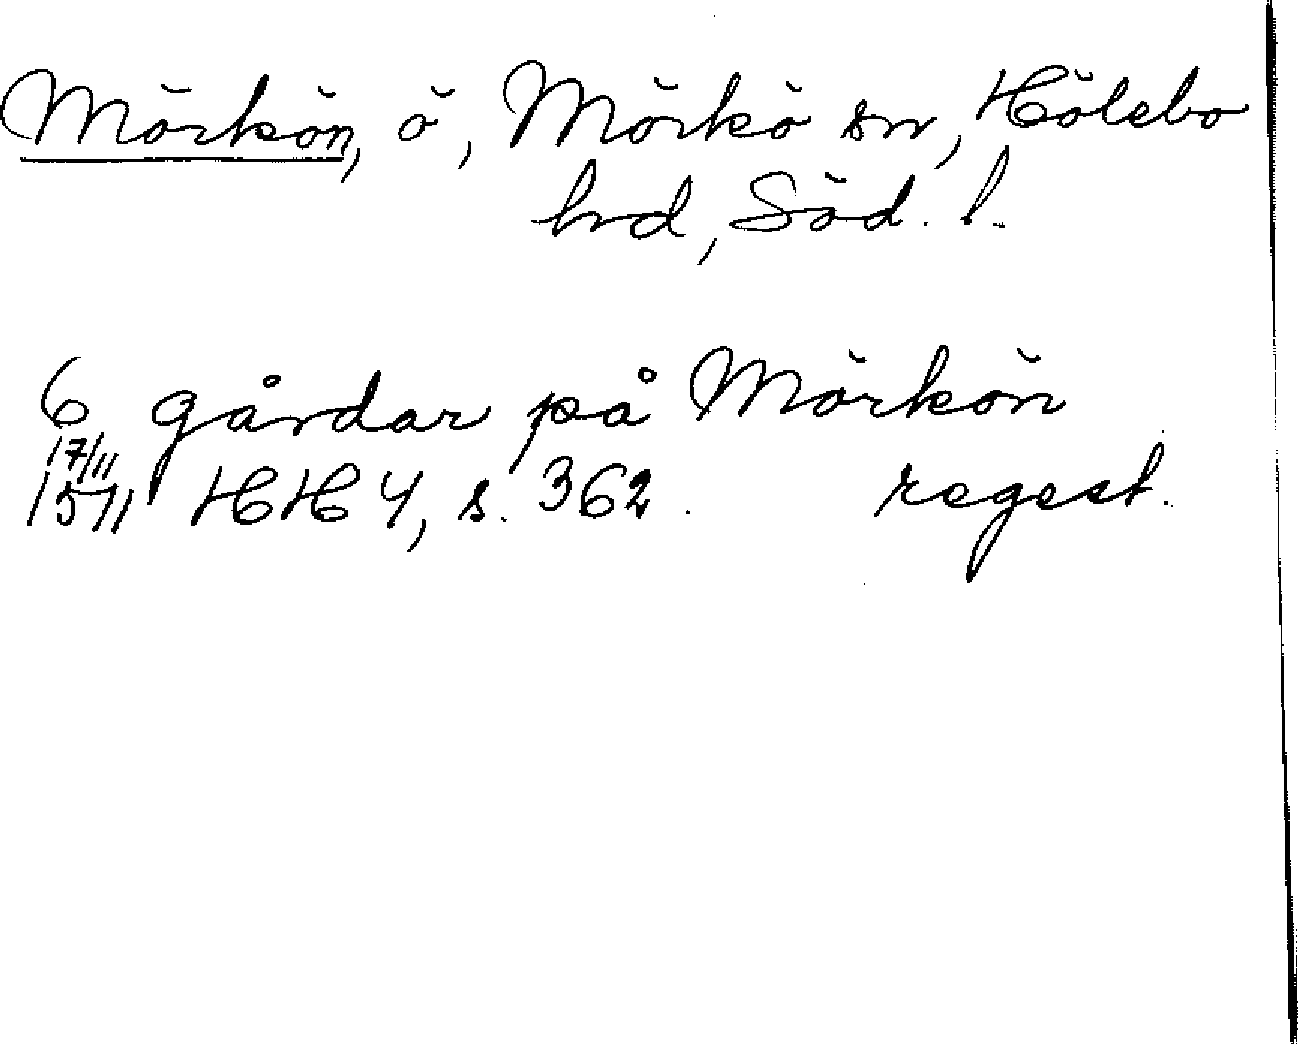 Mörkön, ö, Mörkö sn, Hölebo
hrd, Söd. l.
6 gårdar på Mörkön
17/11
1571 HH 4, s. 362. regest.